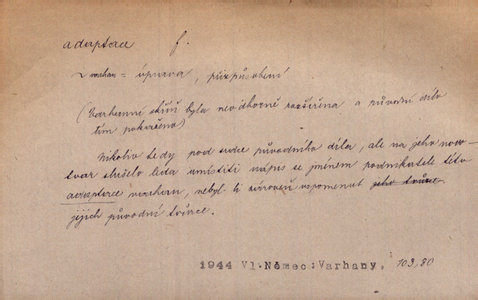 adaptace f.
~ varhan = úprava, přizpůsobení
(Varhanní skříň byla neodborně rozšířena a původní dílo
tím pokaženo)
Nikoliv tedy pod srdce původního díla, ale na jeho novo-
tvar slušelo umístiti nápis se jménem podnikatele této
adaptace varhan, nebyl-li zároveň vzpomenut jeho tvůrce
jejich původní tvůrce.
1944 Vl. Němec: Varhany, 103, 80